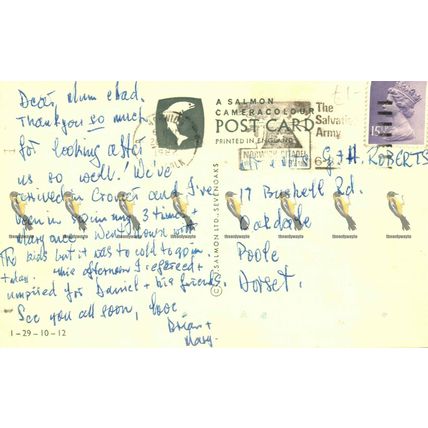 Dear, Mum & dad.
Thank you so much
for looking after
us so well! We've
arrived in Cromer and I've
been in swimming 3 times +
Mary once. Went down with
The kids but it was to cold to go in
today. This afternoon I refereed +
umpired for Daniel + his friends.
See you all soon, love
Brian +
Mary.
1-29-10-12
A SALMON
CAMERACOLOUR
POST CARD
PRINTED IN ENGLAND
© J. SALMON LTD., SEVENOAKS
The
Salvation
Army
NORWICH CITADEL
15½P
G & H. ROBERTS
17 Bushell Rd.
Oakdale
Poole
Dorset.
theoldywayto theoldywayto theoldywayto theoldywayto theoldywayto theoldywayto theoldywayto